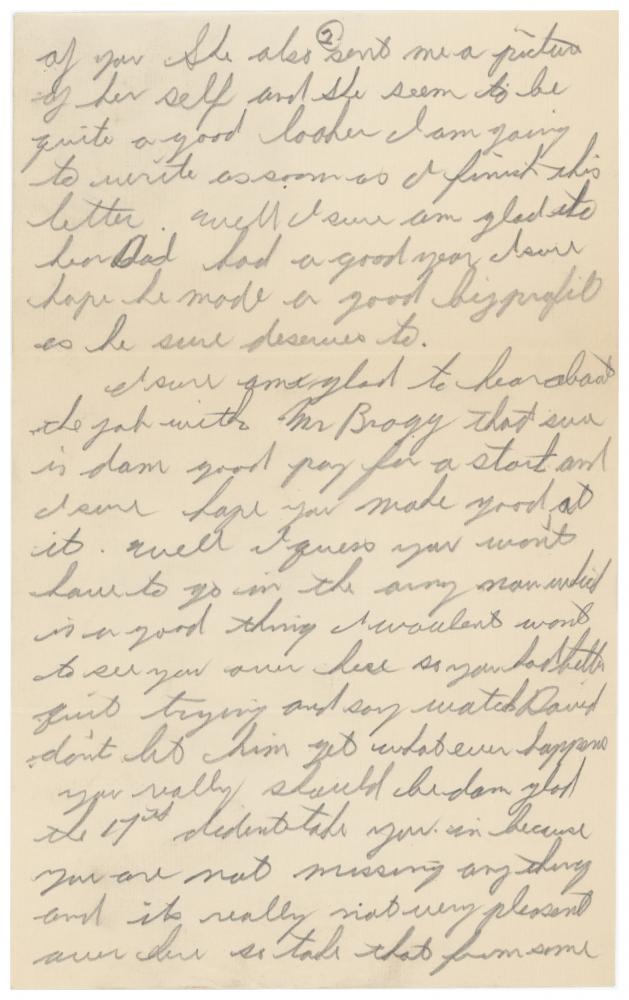 2
of you She also sent me a picture
of her self and she seem to be
quite a good looker I am going
to write as soon as I finish this
letter. Well I sure am glad to
hear Dad had a good year I sure
hope he made a good big profit
as he sure deserves to.
I sure am glad to hear about
the job with Mr Bragg that sure
is dam good pay for a start and
I sure hope you made good at
it. Well I guess you wont
have to go in the army now which
is a good thing I woulent want
to see you over here so you had better
quit trying and say watch David
don't let him get what ever happens
you really should be dam glad
the 17th dident take you in because
you are not missing any thing
and its really not very pleasent
over here so take that from some